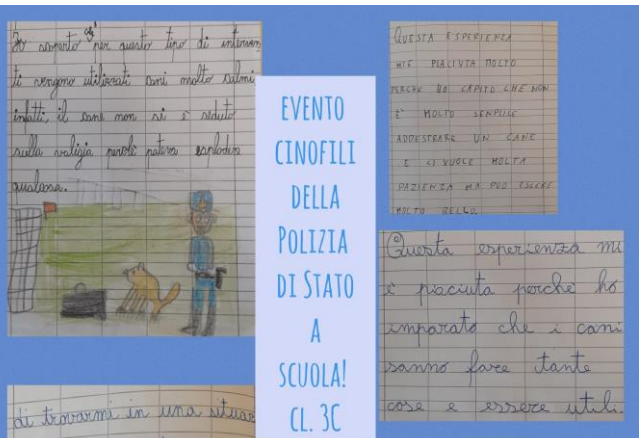 Ho scoperto che per questo tipo di interven
ti vengono utilizzati cani molto calmi,
infatti, il cane non si è seduto
sulla valigia perché poteva esplodere
qualcosa.
EVENTO
CINOFILI
DELLA
POLIZIA
DI STATO
A
SCUOLA!
CL. 3C
QUESTA ESPERIENZA
MI È PIACIUTA MOLTO
PERCHÉ HO CAPITO CHE NON
È MOLTO SEMPLICE
ADDESTRARE UN CANE
E CI VUOLE MOLTA
PAZIENZA MA PUÒ ESSERE
MOLTO BELLO.
Questa esperienza mi
è piaciuta perché ho
imparato che i cani
sanno fare tante
cose e essere utili.
di trovarmi in una situaz